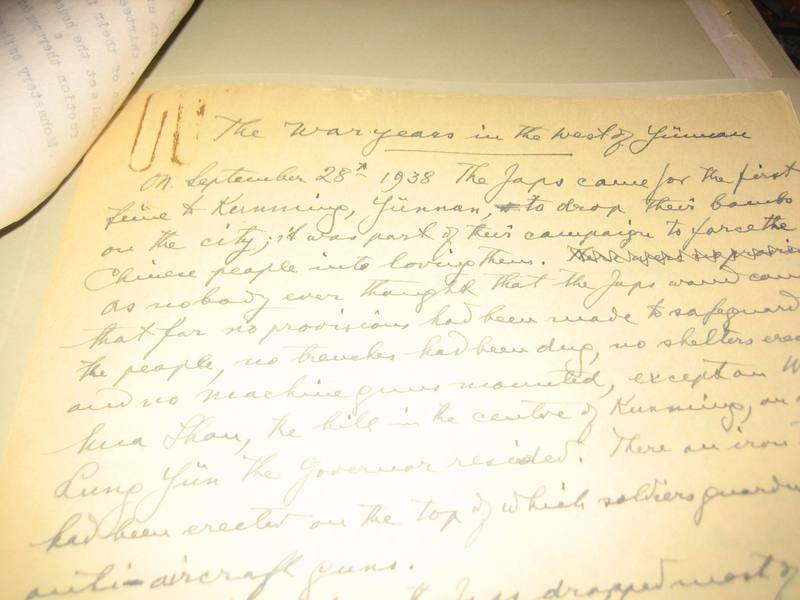 The War years in the west of Yünnan
On September 28th 1938 The Japs came for the first
time to Kunming, Yünnan, to drop their bombs
on the city; it was part of their campaign to force the
Chinese people into loving them.
As nobody ever thought that the Japs would come
that far no provisions had been made to safeguard
the people, no trenches had been dug, no shelters erec
and no machine guns mounted, except on W
hua Shan, the hill in the centre of Kunming, on
Lung Yün the Governor resided. There an iron
had been erected on the top of which soldiers guarde
anti-aircraft guns.
dropped most of